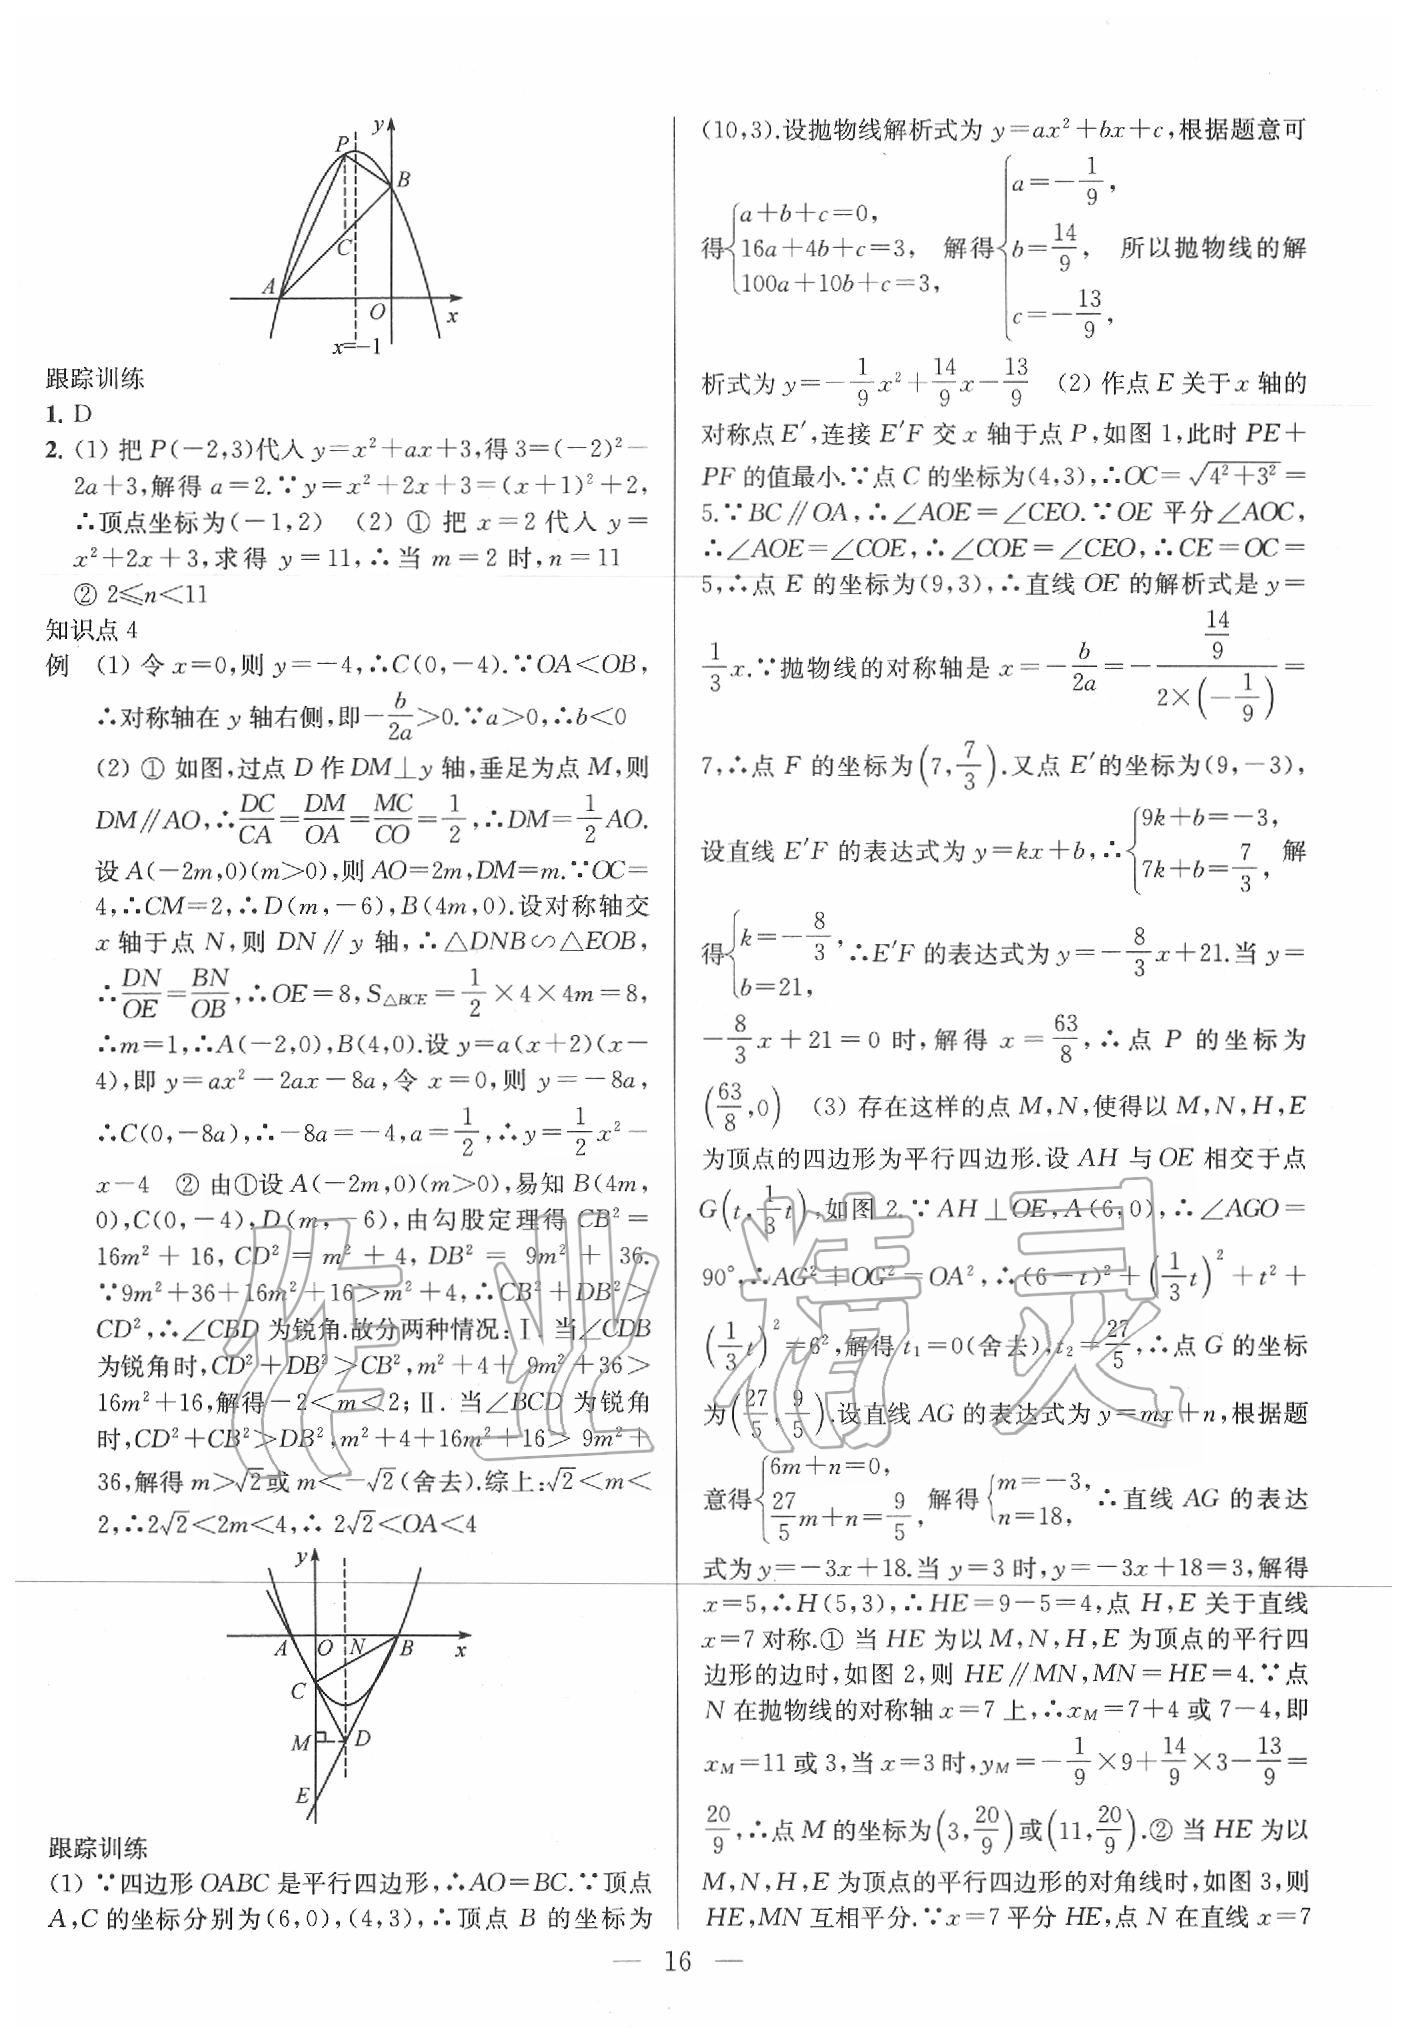 y
P
B
C
A
O
x
x=-1
跟踪训练
1. D
2. (1) 把 P(-2,3)代入 y=x²+ax+3,得 3=(-2)²-
2a+3,解得 a=2.∵y=x²+2x+3=(x+1)²+2,
∴顶点坐标为(-1,2) (2) ① 把 x=2 代入 y=
x²+2x+3,求得 y=11,∴当 m=2 时,n=11
② 2≤n<11
知识点 4
例 (1) 令 x=0,则 y=-4,∴C(0,-4).∵OA<OB,
∴对称轴在 y 轴右侧,即-b/2a>0.∵a>0,∴b<0
(2) ① 如图,过点 D 作 DM⊥y 轴,垂足为点 M,则
DM∥AO,∴DC/CA=DM/OA=MC/CO=1/2,∴DM=1/2AO.
设 A(-2m,0)(m>0),则 AO=2m,DM=m.∵OC=
4,∴CM=2,∴D(m,-6),B(4m,0).设对称轴交
x 轴于点 N,则 DN∥y 轴,∴△DNB∽△EOB,
∴DN/OE=BN/OB,∴OE=8,S△BCE=1/2×4×4m=8,
∴m=1,∴A(-2,0),B(4,0).设 y=a(x+2)(x-
4),即 y=ax²-2ax-8a,令 x=0,则 y=-8a,
∴C(0,-8a),∴-8a=-4,a=1/2,∴y=1/2x²-
x-4 ② 由①设 A(-2m,0)(m>0),易知 B(4m,
0),C(0,-4),D(m,-6),由勾股定理得 CB²=
16m²+16,CD²=m²+4,DB²=9m²+36.
∵9m²+36+16m²+16>m²+4,∴CB²+DB²>
CD²,∴∠CBD 为锐角.故分两种情况:Ⅰ. 当∠CDB
为锐角时,CD²+DB²>CB²,m²+4+9m²+36>
16m²+16,解得-2<m<2;Ⅱ. 当∠BCD 为锐角
时,CD²+CB²>DB²,m²+4+16m²+16>9m²+
36,解得 m>√2或 m<-√2(舍去).综上:√2<m<
2,∴2√2<2m<4,∴2√2<OA<4
y
A
O
N
B
x
C
M
D
E
跟踪训练
(1) ∵四边形 OABC 是平行四边形,∴AO=BC.∵顶点
A,C 的坐标分别为(6,0),(4,3),∴顶点 B 的坐标为
(10,3).设抛物线解析式为 y=ax²+bx+c,根据题意可
得{a+b+c=0, 16a+4b+c=3, 100a+10b+c=3, 解得{a=-1/9, b=14/9, c=-13/9, 所以抛物线的解
析式为 y=-1/9x²+14/9x-13/9 (2) 作点 E 关于 x 轴的
对称点 E′,连接 E′F 交 x 轴于点 P,如图 1,此时 PE+
PF 的值最小.∵点 C 的坐标为(4,3),∴OC=√(4²+3²)=
5.∵BC∥OA,∴∠AOE=∠CEO.∵OE 平分∠AOC,
∴∠AOE=∠COE,∴∠COE=∠CEO,∴CE=OC=
5,∴点 E 的坐标为(9,3),∴直线 OE 的解析式是 y=
1/3x.∵抛物线的对称轴是 x=-b/2a=-(14/9)/(2×(-1/9))=
7,∴点 F 的坐标为(7,7/3).又点 E′的坐标为(9,-3),
设直线 E′F 的表达式为 y=kx+b,∴{9k+b=-3, 7k+b=7/3, 解
得{k=-8/3, b=21, ∴E′F 的表达式为 y=-8/3x+21.当 y=
-8/3x+21=0 时,解得 x=63/8,∴点 P 的坐标为
(63/8,0) (3) 存在这样的点 M,N,使得以 M,N,H,E
为顶点的四边形为平行四边形.设 AH 与 OE 相交于点
G(t,1/3t),如图 2.∵AH⊥OE,A(6,0),∴∠AGO=
90°,∴AG²+OG²=OA²,∴(6-t)²+(1/3t)²+t²+
(1/3t)²=6²,解得 t₁=0(舍去),t₂=27/5,∴点 G 的坐标
为(27/5,9/5).设直线 AG 的表达式为 y=mx+n,根据题
意得{6m+n=0, 27/5m+n=9/5, 解得{m=-3, n=18, ∴直线 AG 的表达
式为 y=-3x+18.当 y=3 时,y=-3x+18=3,解得
x=5,∴H(5,3),∴HE=9-5=4,点 H,E 关于直线
x=7 对称.① 当 HE 为以 M,N,H,E 为顶点的平行四
边形的边时,如图 2,则 HE∥MN,MN=HE=4.∵点
N 在抛物线的对称轴 x=7 上,∴xM=7+4 或 7-4,即
xM=11 或 3,当 x=3 时,yM=-1/9×9+14/9×3-13/9=
20/9,∴点 M 的坐标为(3,20/9)或(11,20/9).② 当 HE 为以
M,N,H,E 为顶点的平行四边形的对角线时,如图 3,则
HE,MN 互相平分.∵x=7 平分 HE,点 N 在直线 x=7
— 16 —
作业精灵